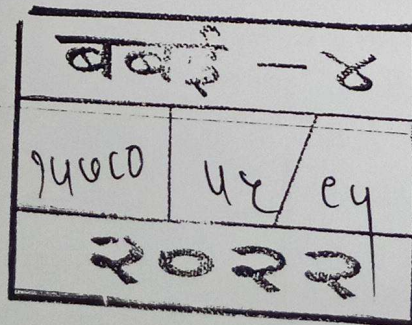 बबई - ४
१५७८० ५२/९५
२०२२